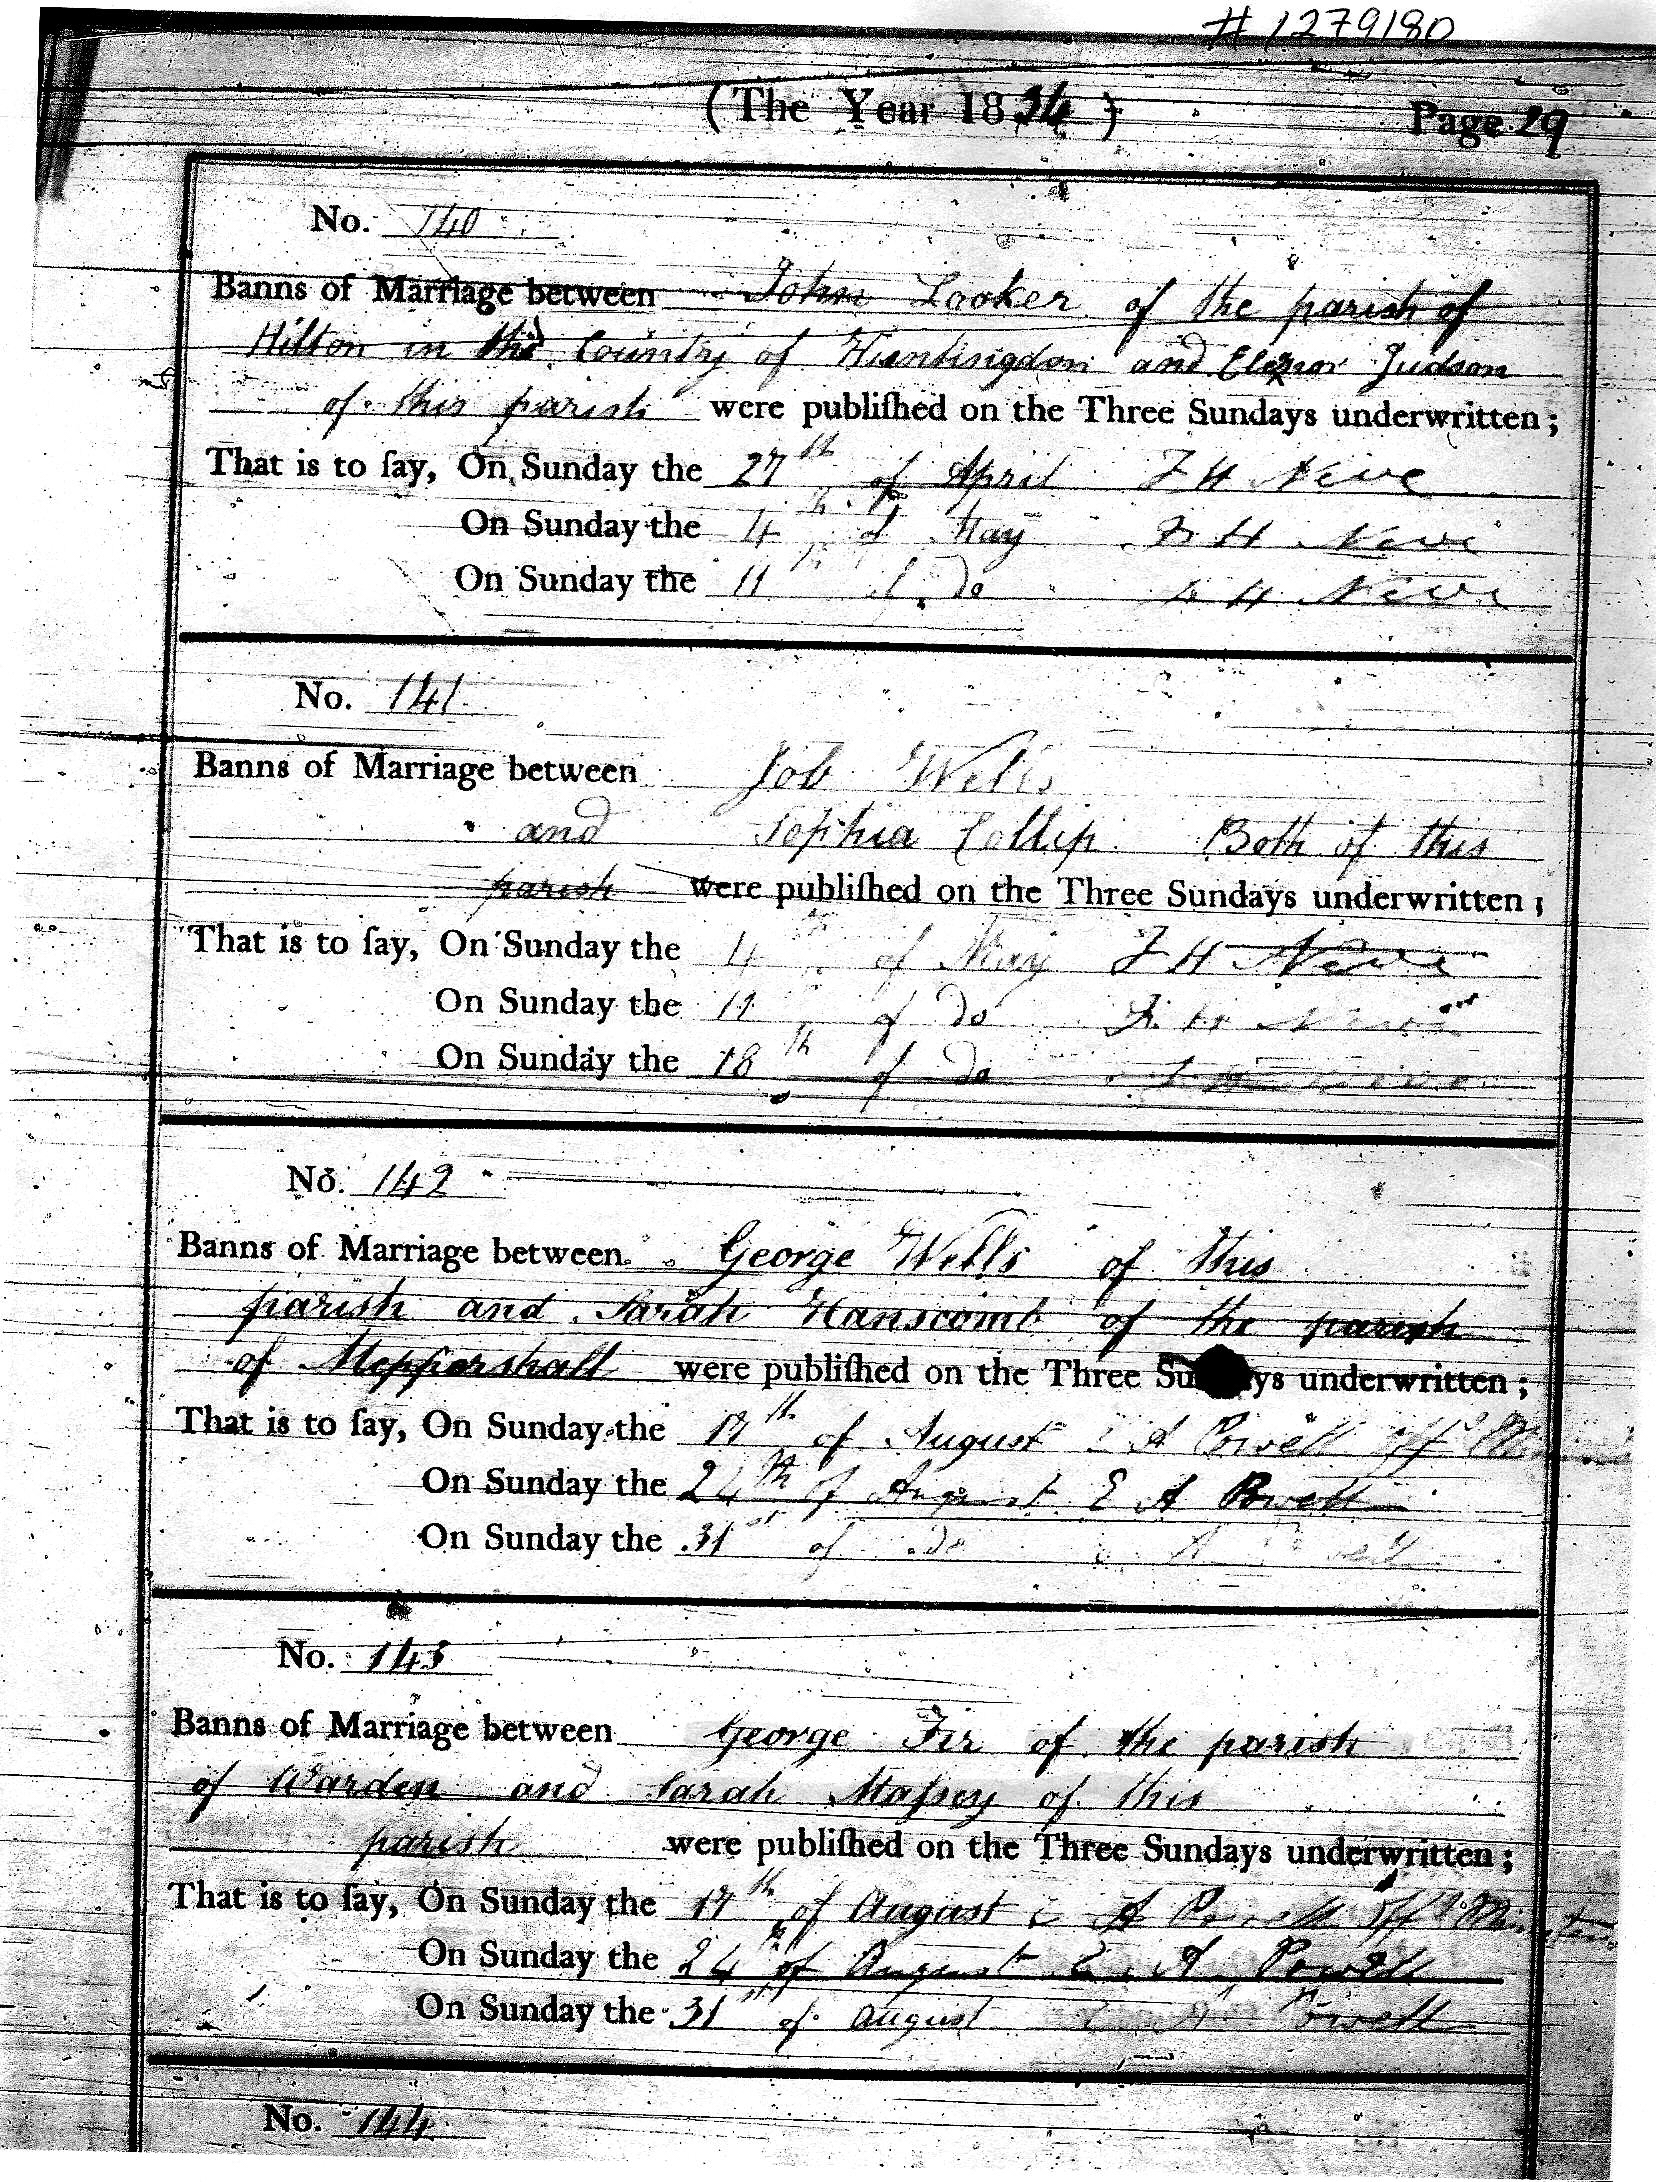 # 1279180
(The Year 1834) Page 29
No. 140
Banns of Marriage between John Looker of the parish of
Hilton in the Country of Huntingdon and Elenor Judson
of this parish were publiſhed on the Three Sundays underwritten;
That is to ſay, On Sunday the 27th of April F H Neve
On Sunday the 4th of May F H Neve
On Sunday the 11th of do F H Neve
No. 141
Banns of Marriage between Job Wells
and Sophia Collip Both of this
parish were publiſhed on the Three Sundays underwritten;
That is to ſay, On Sunday the 4th of May F H Neve
On Sunday the 11th of do F H Neve
On Sunday the 18th of do F H Neve
No. 142
Banns of Marriage between George Wells of this
parish and Sarah Hanscomb of the parish
of Meppershall were publiſhed on the Three Sundays underwritten;
That is to ſay, On Sunday the 17th of August E A Powell Offg Min
On Sunday the 24th of August E A Powell
On Sunday the 31st of do E A Powell
No. 143
Banns of Marriage between George Fir of the parish
of Warden and Sarah Maſsey of this
parish were publiſhed on the Three Sundays underwritten;
That is to ſay, On Sunday the 17th of August E A Powell Offg Minister
On Sunday the 24th of August E A Powell
On Sunday the 31st of August E A Powell
No. 144